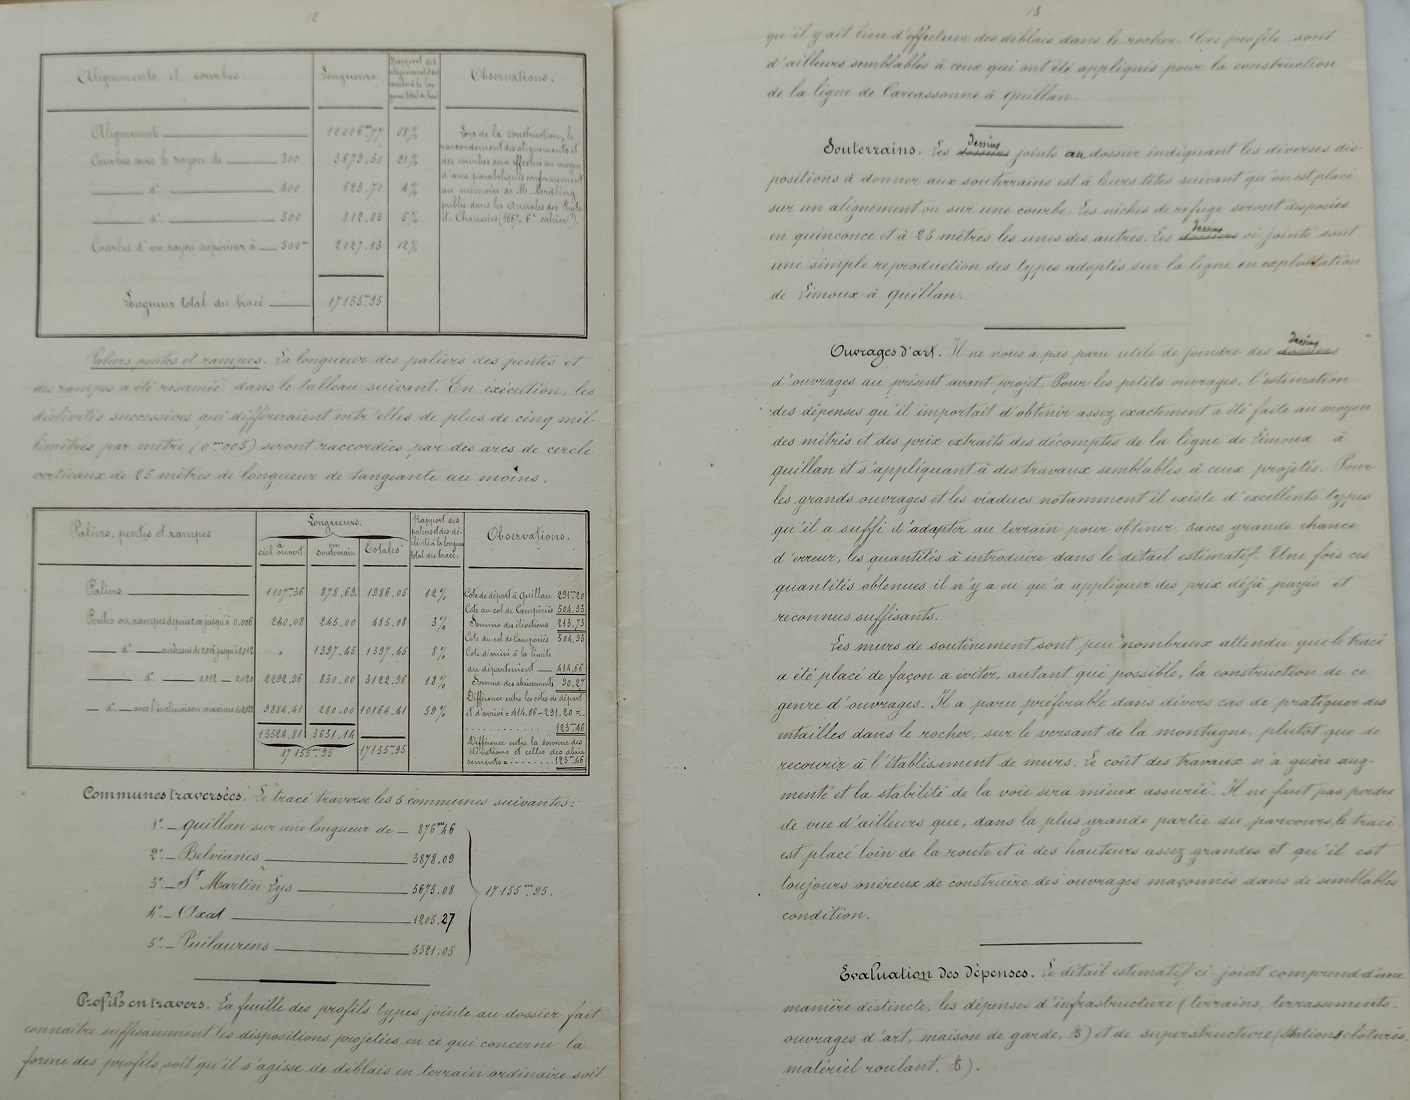 12
Alignements et courbes. Longueurs. Rapport des alignements et courbes à la longueur total du tracé Observations.
Alignement 10006.m77 58%
Courbes avec le rayon de 300 3679.50 21%
d°. 400 629.70 4%
d°. 500 812.85 5%
Courbes d'un rayon supérieur à 500m 2027.13 12%
Longueur total du tracé 17155m95
Lors de la construction, le
raccordement des alignements et
des courbes sera effectué au moyen
d'arcs paraboliques conformément
au mémoire de Mr. Nordling
publié dans les Annales des Ponts
et Chaussées (1867. 6e cahier).
Paliers pentes et rampes. La longueur des paliers des pentes et
des rampes a été résumée dans le tableau suivant. En éxécution, les
déclivités successives qui différeraient entr'elles de plus de cinq mil-
limètres par mètre (0m005) seront raccordées par des arcs de cercle
verticaux de 25 mètres de longueur de tangeante au moins.
Paliers, pentes et rampes Longueurs. à ciel ouvert. en souterrain Totales Rapport des
total du tracé. Observations.
Paliers 1107m36 878.69 1986.05 12%
Pentes ou rampes depuis 0.00 jusqu'à 0,006 240.08 245.00 485.08 3%
d° au dessus de 0.006 jusqu'à 0,012 " 1397.45 1397.45 8%
d°. 0,012 0,020 2292.96 830.00 3122.96 18%
d° avec l'inclinaison maxima de 0.022 9884.41 280.00 10164.41 59%
13524.81 3631.14
17155m95 17155m95
Cote de départ à Quillan 291m20
Cote au col de Campériès 504.93
Somme des élévations 213,73
Cote du col de Campériès 504.93
Cote d'arrivé à la limite
du département 414.66
Somme des abaissements 90.27
Différence entre les cotes de départ
et d'arrivé = 414.66 - 291,20 =.
123m46
Différence entre la somme des
élévations et celles des abais
sements = 123m46
Communes traversées. Le tracé traverse les 5 communes suivantes:
1°. Quillan sur une longueur de 876m46
2°. Belvianes 3878.09
3°. St Martin-Lys 5675.08
4°. Axat 1205.27
5°. Puilaurens 5521.05
17155m95.
Profils en travers. La feuille des profils types jointe au dossier fait
connaître suffisamment les dispositions projetées en ce qui concerne la
forme des profils, soit qu'il s'agisse de déblais en terrain ordinaire soit
13
qu'il y ait lieu d'effectuer des déblais dans le rocher. Ces profils sont
d'ailleurs semblables à ceux qui ont été appliqués pour la construction
de la ligne de Carcassonne à Quillan.
Souterrains. Les dessins dossiers joints au dossier indiquant les diverses dis-
positions à donner aux souterrains est à leurs têtes suivant qu'on est placé
sur un alignement ou sur une courbe. Les niches de refuge seront disposées
en quinconce et à 25 mètres les unes des autres. Les dessins dossiers ci-joints sont
une simple reproduction des types adoptés sur la ligne en exploitation
de Limoux à Quillan.
Ouvrages d'art. Il ne nous a pas paru utile de joindre des dessins dossiers
d'ouvrages au présent avant projet. Pour les petits ouvrages, l'estimation
des dépenses qu'il importait d'obtenir assez exactement a été faite au moyen
des métrés et des prix extraits des décomptes de la ligne de Limoux à
Quillan et s'appliquant à des travaux semblables à ceux projetés. Pour
les grands ouvrages et les viaducs notamment il existe d'excellents types
qu'il a suffi d'adapter au terrain pour obtenir, sans grande chance
d'erreur, les quantités à introduire dans le détail estimatif. Une fois ces
quantités obtenues il n'y a eu qu'a appliquer des prix déjà payés et
reconnus suffisants.
Les murs de soutènement sont peu nombreux attendu que le tracé
a été placé de façon a éviter, autant que possible, la construction de ce
genre d'ouvrages. Il a paru préférable dans divers cas de pratiquer des
entailles dans le rocher, sur le versant de la montagne, plutôt que de
recourir à l'établissement de murs. Le coût des travaux n'a guère aug-
menté et la stabilité de la voie sera mieux assurée. Il ne faut pas perdre
de vue d'ailleurs que, dans la plus grande partie du parcours, le tracé
est placé loin de la route et à des hauteurs assez grandes et qu'il est
toujours onéreux de construire des ouvrages maçonnés dans de semblables
condition.
Evaluation des dépenses. Le détail estimatif ci-joint comprend d'une
manière distincte, les dépenses d'infrastructure (terrains, terrassements.
ouvrages d'art, maison de garde, &) et de superstructure (stations clôtures,
matériel roulant. &).